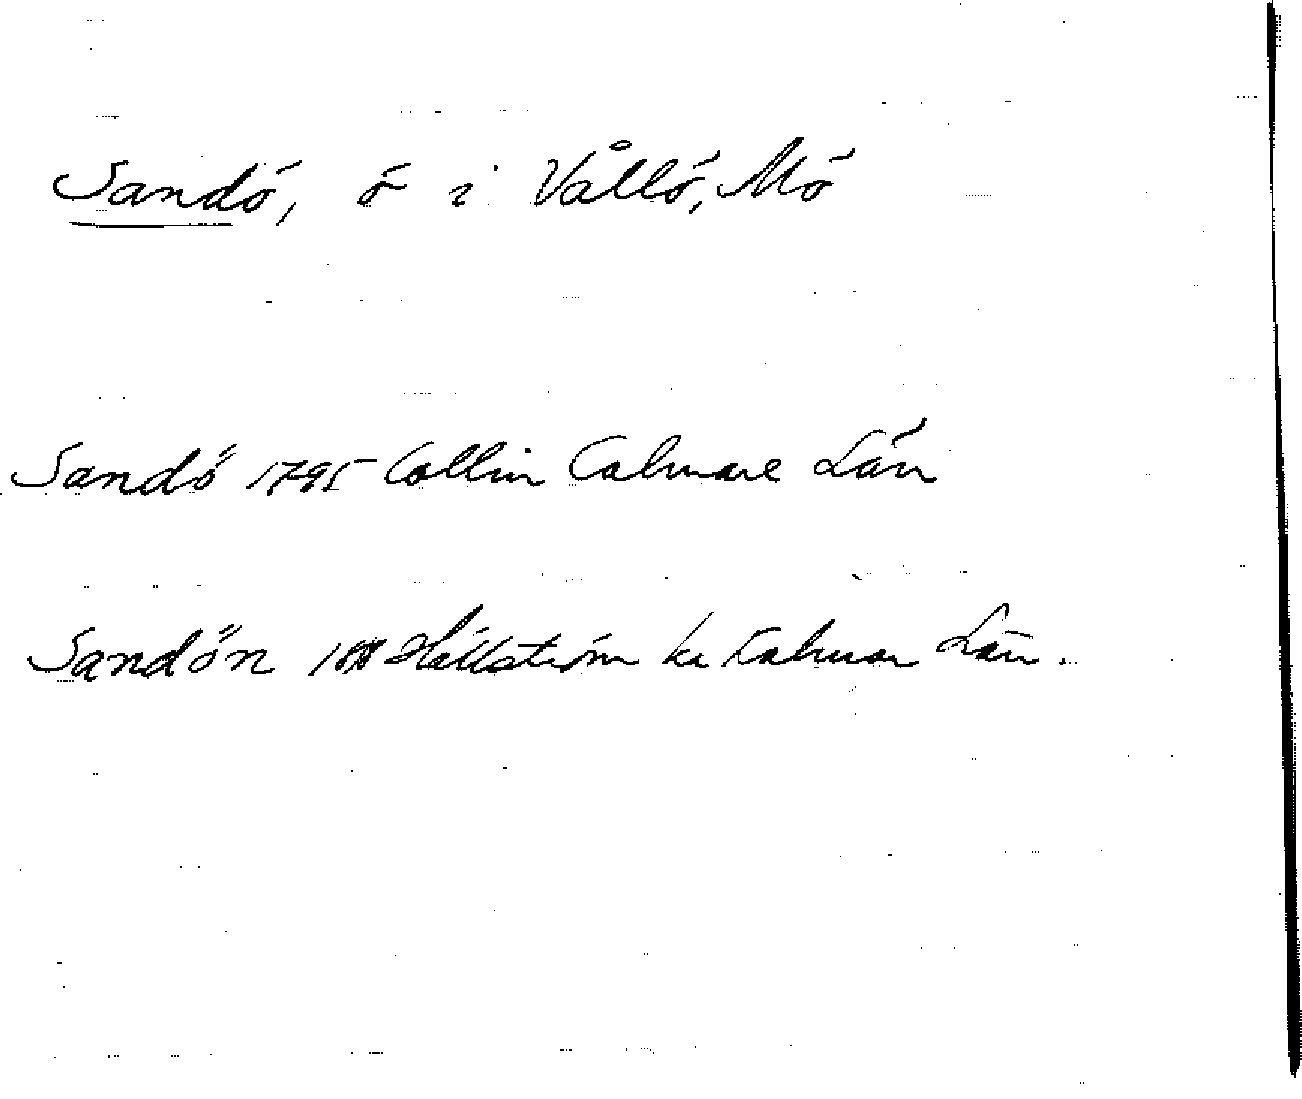 Sandö, ö i Vållö, Mö
Sandö 1795 Collin Calmare Län
Sandön Hällström ka Kalmar Län.